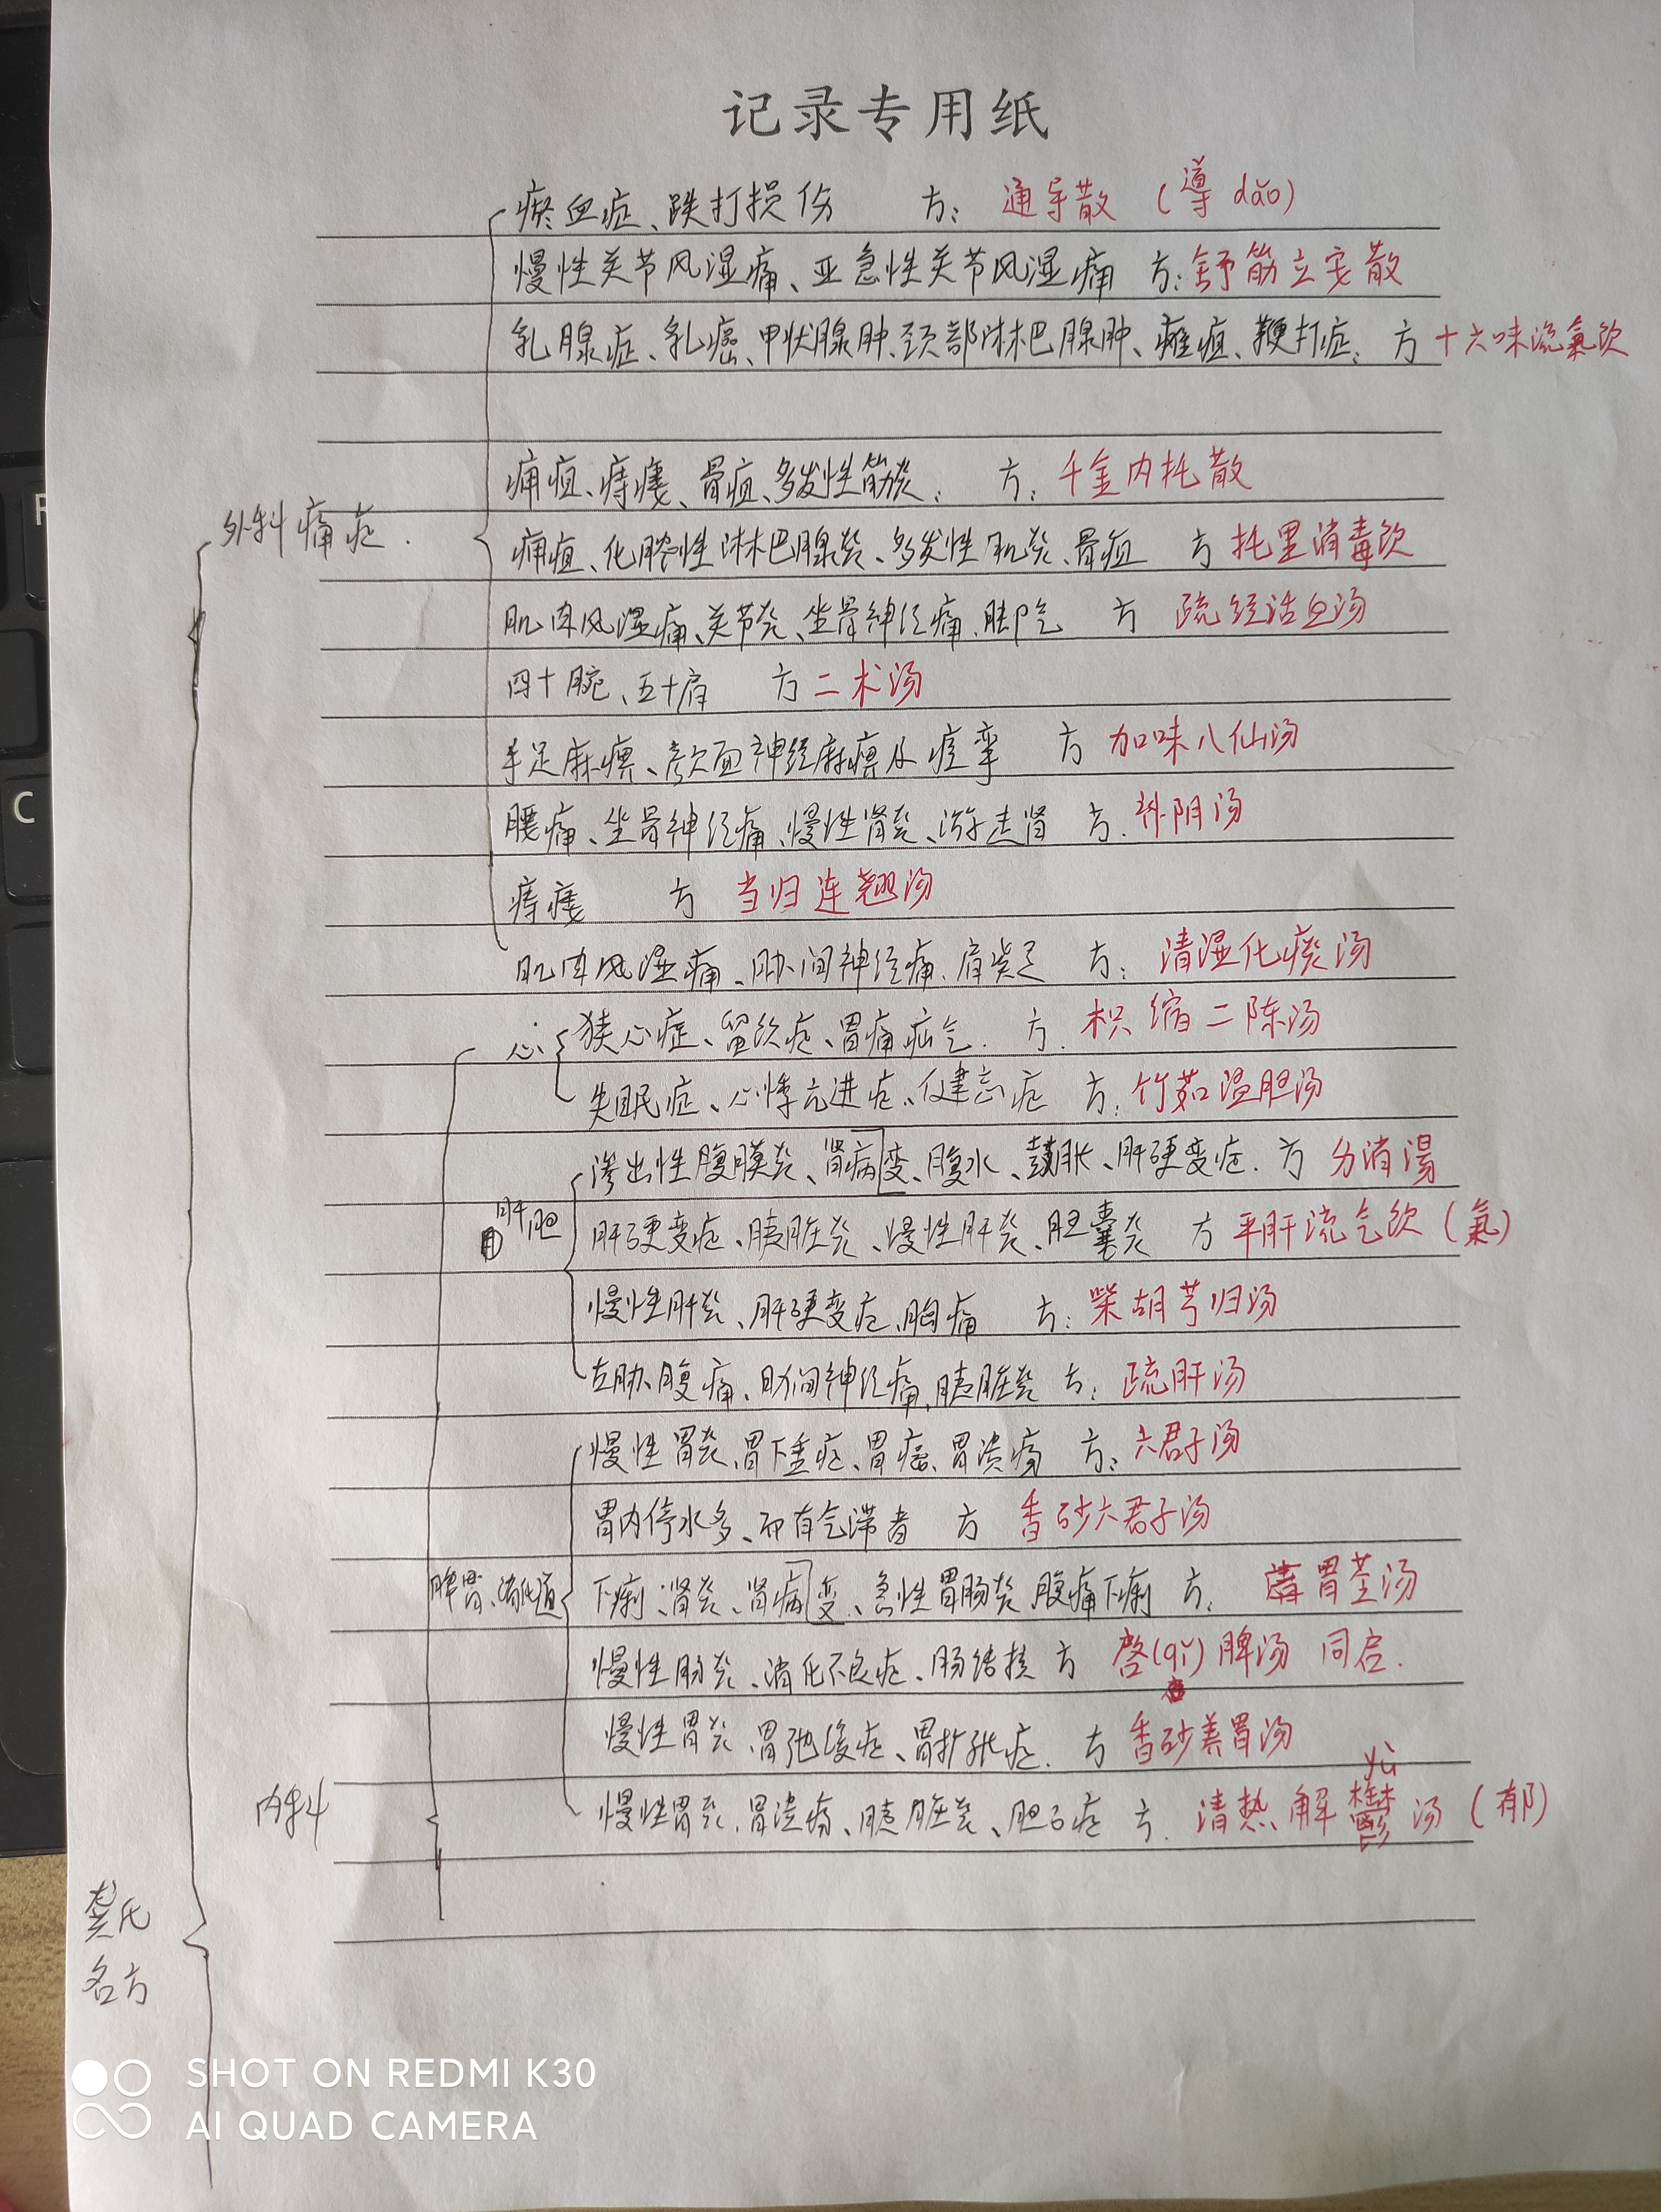 记录专用纸
瘀血症、跌打损伤 方: 通导散 (導 dǎo)
慢性关节风湿痛、亚急性关节风湿痛 方: 舒筋立安散
乳腺症、乳癌、甲状腺肿、颈部淋巴腺肿、瘫疽、鞭打症: 方 十六味流氣饮
痈疽、痔瘘、骨疽、多发性筋炎: 方: 千金内托散
外科痛症.
痈疽、化脓性淋巴腺炎、多发性肌炎、骨疽 方 托里消毒饮
肌肉风湿痛、关节炎、坐骨神经痛、脚气 方 疏经活血汤
四十腕、五十肩 方 二术汤
手足麻痹、颜面神经麻痹及痉挛 方 加味八仙汤
腰痛、坐骨神经痛、慢性肾炎、游走肾 方. 补阴汤
痔瘘 方 当归连翘汤
肌肉风湿痛、肋间神经痛、肩凝 方: 清湿化痰汤
心 狭心症、留饮症、胃痛疝气. 方. 枳缩二陈汤
失眠症、心悸亢进症、健忘症 方: 竹茹温胆汤
渗出性腹膜炎、肾病变、腹水、鼓胀、肝硬变症. 方 分消湯
肝胆 肝硬变症、胰脏炎、慢性肝炎、胆囊炎 方 平肝流气饮 (氣)
慢性肝炎、肝硬变症、胸痛 方: 柴胡芎归汤
左胁腹痛、肋间神经痛、胰脏炎 方: 疏肝汤
慢性胃炎、胃下垂症、胃癌、胃溃疡 方: 六君子汤
胃内停水多、而有气滞者 方 香砂六君子汤
脾胃、消化道 下痢、肾炎、肾病变、急性胃肠炎、腹痛下痢 方: 胃苓汤
慢性肠炎、消化不良症、肠结核 方 啓(qǐ)脾汤 同启.
慢性胃炎、胃弛缓症、胃扩张症. 方 香砂养胃汤
yù
内科 慢性胃炎、胃溃疡、胰脏炎、胆石症 方. 清热解鬱汤 (郁)
龚氏
名方
SHOT ON REDMI K30
AI QUAD CAMERA